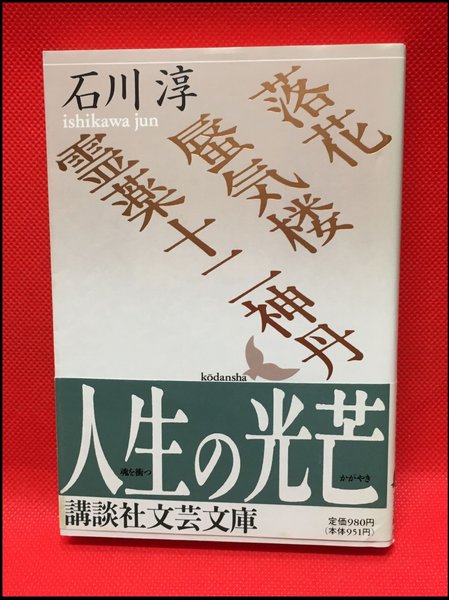 石川 淳
ishikawa jun
落花
蜃気楼
霊薬十二神丹
kōdansha
人生の光芒
魂を衝つ
かがやき
講談社文芸文庫
定価980円
(本体951円)